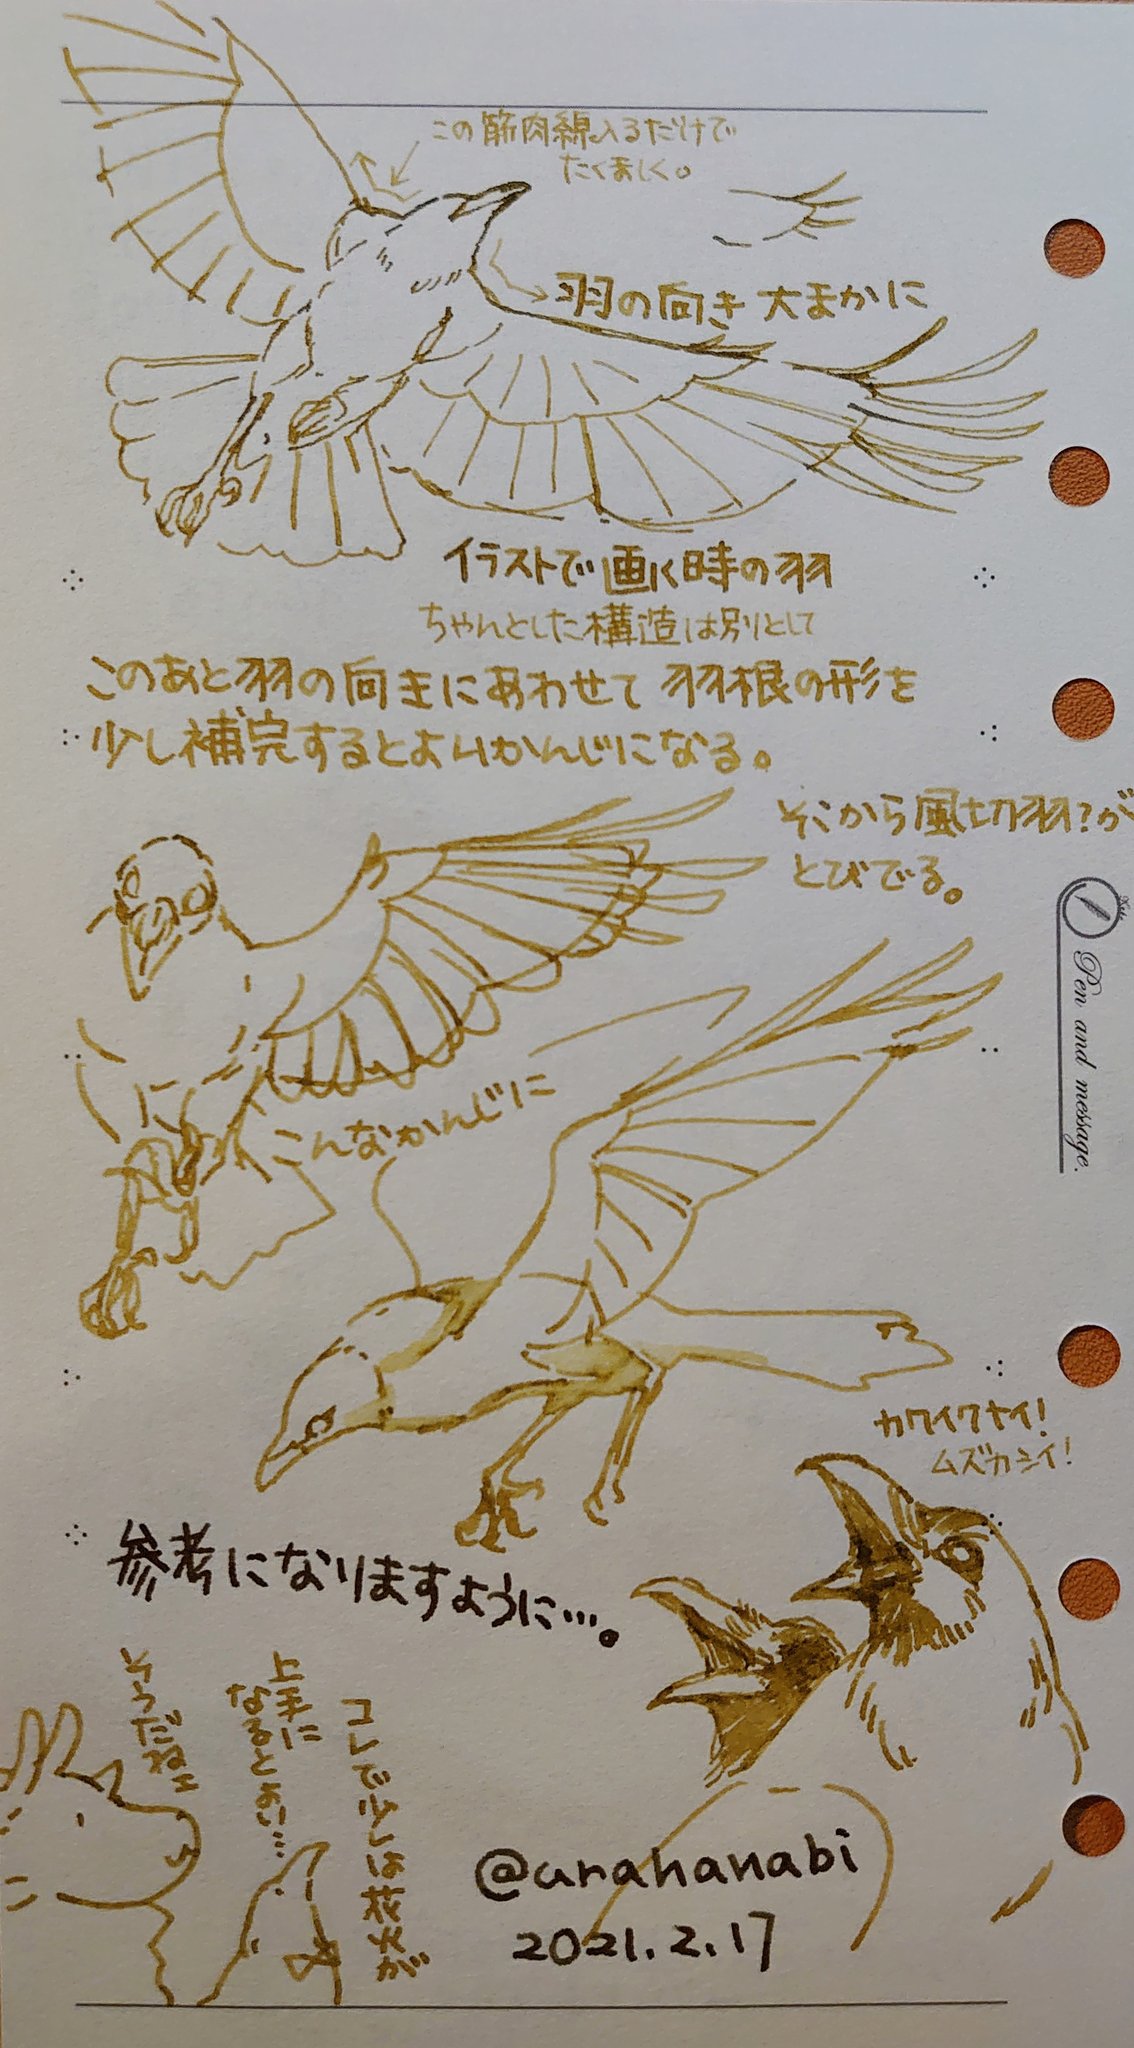 この筋肉線入るだけで
たくましく。
羽の向き 大まかに
イラストで画く時の羽
ちゃんとした構造は別として
このあと羽の向きにあわせて 羽根の形を
少し補完するとよいかんじになる。
そこから風切羽?が
とびでる。
Pen and message.
こんなかんじに
カワイクナイ!
ムズカシイ!
参考になりますように…。
コレで少しは花火が
上手に
なるとよい…
そうだねェ
@urahanabi
2021.2.17